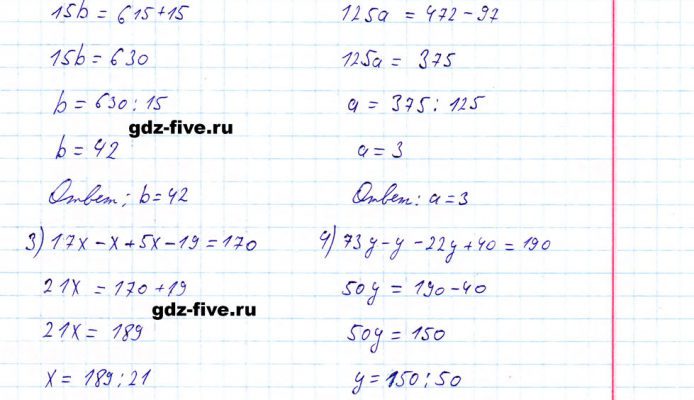 15b = 615+15
15b = 630
b = 630 : 15
gdz-five.ru
b = 42
Ответ: b = 42
125a = 472 - 97
125a = 375
a = 375 : 125
a = 3
Ответ: a = 3
3) 17x - x + 5x - 19 = 170
21x = 170 + 19
gdz-five.ru
21x = 189
x = 189 : 21
4) 73y - y - 22y + 40 = 190
50y = 190 - 40
50y = 150
y = 150 : 50